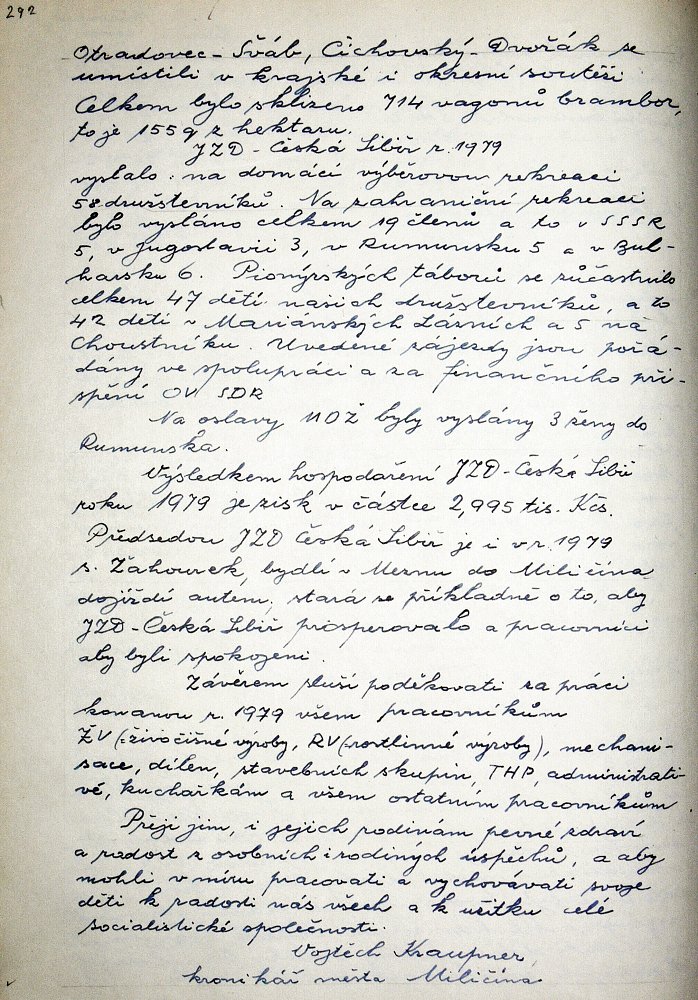 292
Otradovec - Šváb, Čichovský - Dvořák se
umístili v krajské i okresní soutěži
Celkem bylo sklizeno 714 vagonů brambor,
to je 155 q z hektaru.
JZD - Česká Sibiř r. 1979
vyslalo: na domácí výběrovou rekreaci
58 družstevníků. Na zahraniční rekreaci
bylo vysláno celkem 19 členů a to v SSSR
5, v Jugoslavii 3, v Rumunsku 5 a v Bul-
harsku 6. Pionýrských táborů se zůčastnilo
celkem 47 dětí našich družstevníků, a to
42 dětí v Mariánských Lázních a 5 na
Choustníku. Uvedené zájezdy jsou pořá-
dány ve spolupráci a za finančního při-
spění OV SDR
Na oslavy MDŽ byly vyslány 3 ženy do
Rumunska.
Výsledkem hospodaření JZD - Česká Sibiř
roku 1979 je zisk v částce 2,995 tis. Kčs.
Předsedou JZD Česká Sibiř je i v r. 1979
s. Zahourek, bydlí v Meznu do Miličína
dojíždí autem, stará se příkladně o to, aby
JZD - Česká Sibiř prosperovalo a pracovníci
aby byli spokojeni.
Závěrem sluší poděkovati za práci
konanou r. 1979 všem pracovníkům
ŽV (= živočišné výroby, RV (= rostlinné výroby), mechani-
sace, dílen, stavebních skupin, THP, administrati-
vě, kuchařkám a všem ostatním pracovníkům.
Přeji jim, i jejich rodinám pevné zdraví
a radost z osobních i rodiných úspěchů, a aby
mohli v míru pracovati a vychovávati svoje
děti k radosti nás všech a k užitku celé
socialistické společnosti.
Vojtěch Kraupner,
kronikář města Miličína